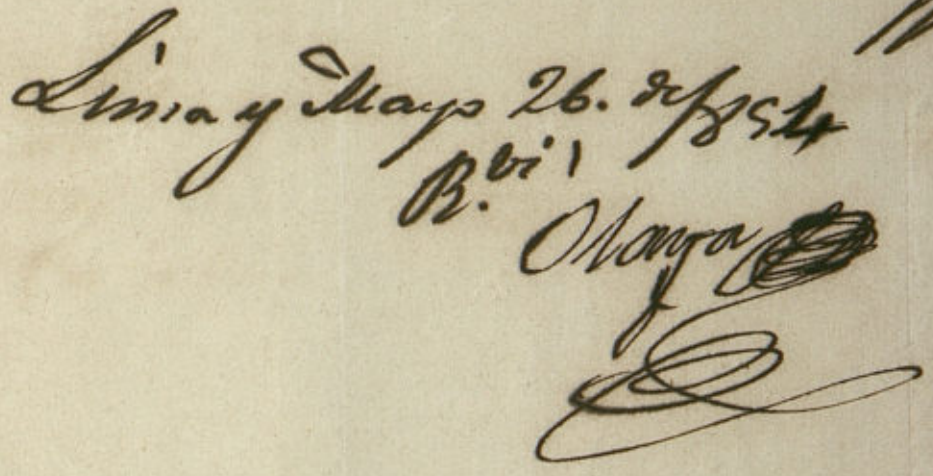 Lima y Mayo 26. de 1854
R.bi 1
Olaya